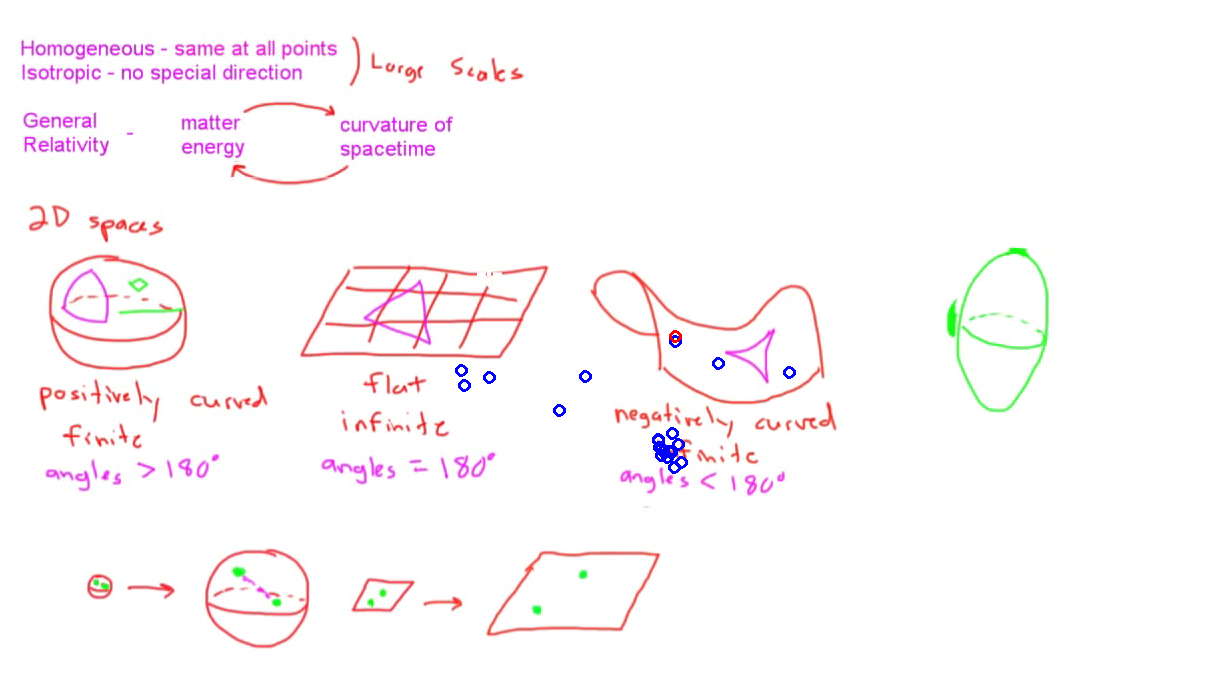 Homogeneous - same at all points
Isotropic - no special direction
Large Scales
General Relativity -
matter energy
curvature of spacetime
2D spaces
positively curved
finite
angles > 180°
flat
infinite
angles = 180°
negatively curved
finite
angles < 180°